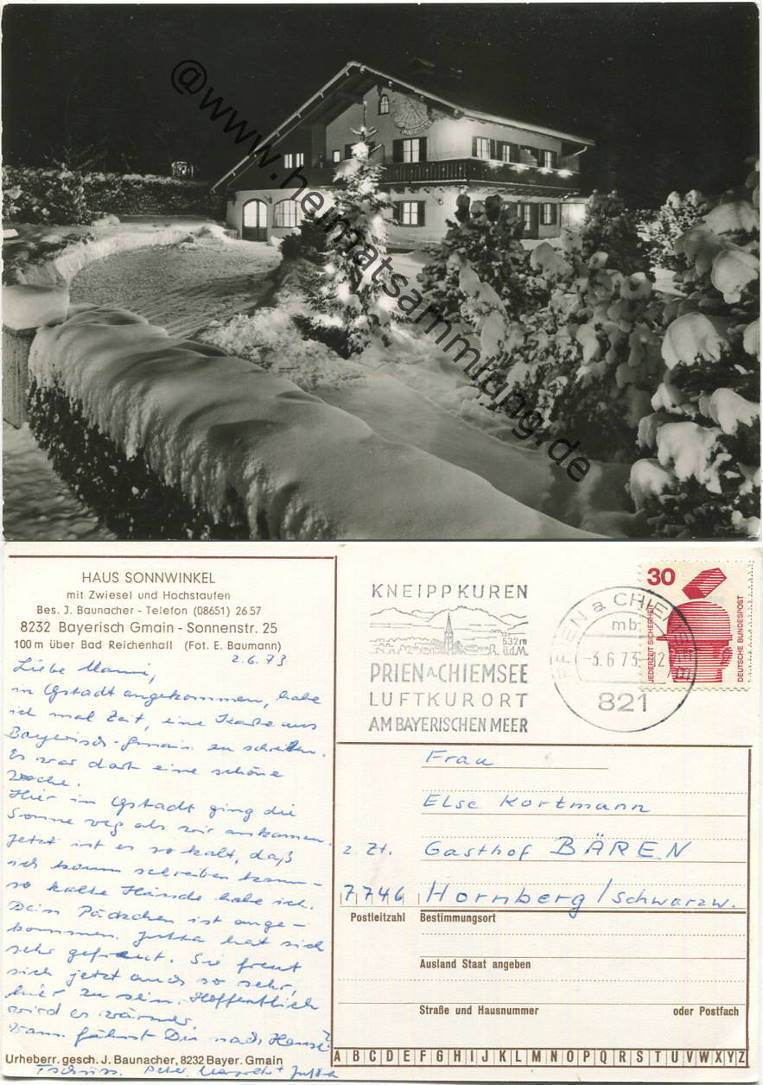 @www.heimatsammlung.de
HAUS SONNWINKEL
mit Zwiesel und Hochstaufen
Bes. J. Baunacher - Telefon (08651) 26 57
8232 Bayerisch Gmain - Sonnenstr. 25
100 m über Bad Reichenhall (Fot. E. Baumann)
2.6.73
Liebe Mammi,
in Gstadt angekommen, habe
ich mal Zeit, eine Karte aus
Bayerisch-Gmain zu schreiben.
Es war dort eine schöne
Woche.
Hier in Gstadt ging die
Sonne weg als wir ankamen.
Jetzt ist es so kalt, daß
ich kaum schreiben kann -
so kalte Hände habe ich.
Dein Päckchen ist ange-
kommen. Jutta hat sich
sehr gefreut. Sie freut
sich jetzt auch so sehr,
hier zu sein. Hoffentlich
wird es wärmer.
Wann fährst Du nach Hause?
Tschüss. Peter, + Jutta
Urheberr. gesch. J. Baunacher, 8232 Bayer. Gmain
KNEIPPKUREN
532m
ü.d.M.
PRIEN A. CHIEMSEE
LUFTKURORT
AM BAYERISCHEN MEER
PRIEN a CHIEMSEE
mb
-3.6.73
821
30
JEDERZEIT SICHERHEIT
DEUTSCHE BUNDESPOST
Frau
Else Kortmann
z. Zt. Gasthof BÄREN
7746 Hornberg/Schwarzw.
Postleitzahl Bestimmungsort
Ausland Staat angeben
Straße und Hausnummer oder Postfach
A B C D E F G H I J K L M N O P Q R S T U V W X Y Z